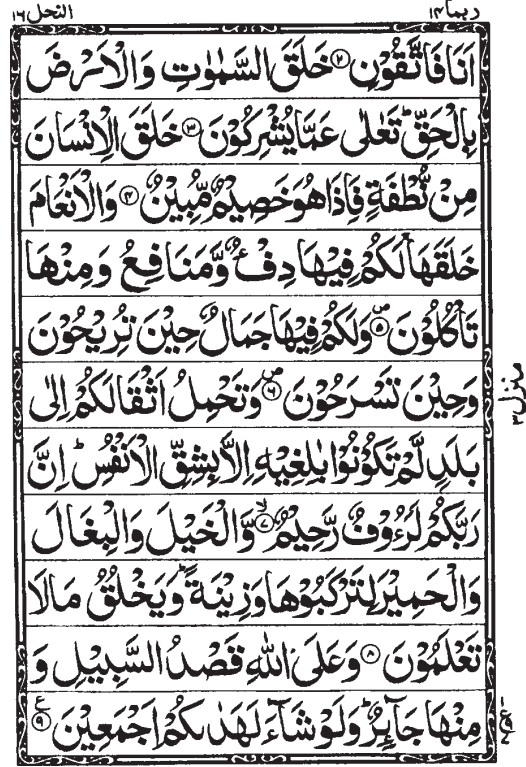 ربما ١٤
النحل ١٦
اَنَا فَاتَّقُوْنِ ۝٢ خَلَقَ السَّمٰوٰتِ وَالْاَرْضَ
بِالْحَقِّ ؕ تَعٰلٰى عَمَّا يُشْرِكُوْنَ ۝٣ خَلَقَ الْاِنْسَانَ
مِنْ نُّطْفَةٍ فَاِذَا هُوَ خَصِيْمٌ مُّبِيْنٌ ۝٤ وَالْاَنْعَامَ
خَلَقَهَا ۚ لَكُمْ فِيْهَا دِفْءٌ وَّمَنَافِعُ وَمِنْهَا
تَاْكُلُوْنَ ۝٥ وَلَكُمْ فِيْهَا جَمَالٌ حِيْنَ تُرِيْحُوْنَ
وَحِيْنَ تَسْرَحُوْنَ ۝٦ وَتَحْمِلُ اَثْقَالَكُمْ اِلٰى
بَلَدٍ لَّمْ تَكُوْنُوْا بٰلِغِيْهِ اِلَّا بِشِقِّ الْاَنْفُسِ ؕ اِنَّ
رَبَّكُمْ لَرَءُوْفٌ رَّحِيْمٌ ۝٧ۙ وَّالْخَيْلَ وَالْبِغَالَ
وَالْحَمِيْرَ لِتَرْكَبُوْهَا وَزِيْنَةً ؕ وَيَخْلُقُ مَا لَا
تَعْلَمُوْنَ ۝٨ وَعَلَى اللّٰهِ قَصْدُ السَّبِيْلِ وَ
مِنْهَا جَآئِرٌ ؕ وَلَوْ شَآءَ لَهَدٰىكُمْ اَجْمَعِيْنَ ۝٩ع
منزل ٣